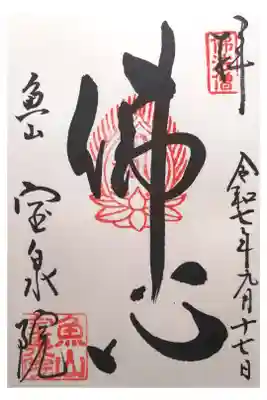 拝
佛法僧
令和七年九月十七日
佛心
魚山
宝泉院
魚山